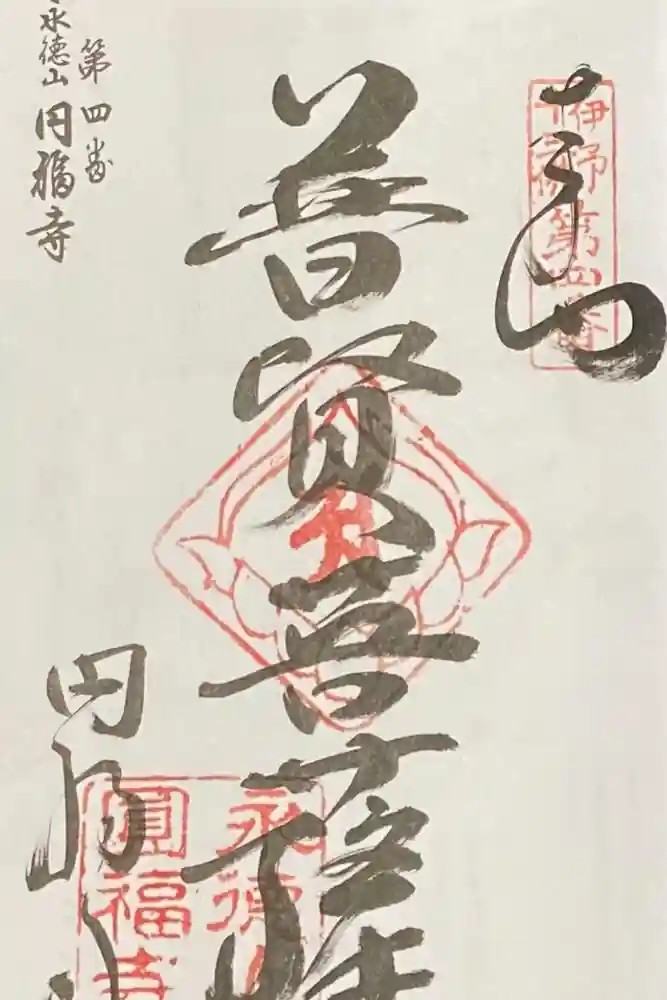 奉拝
伊予十三佛第四番
普賢菩薩
永徳山
圓福寺
円福寺
第四番
永徳山 円福寺